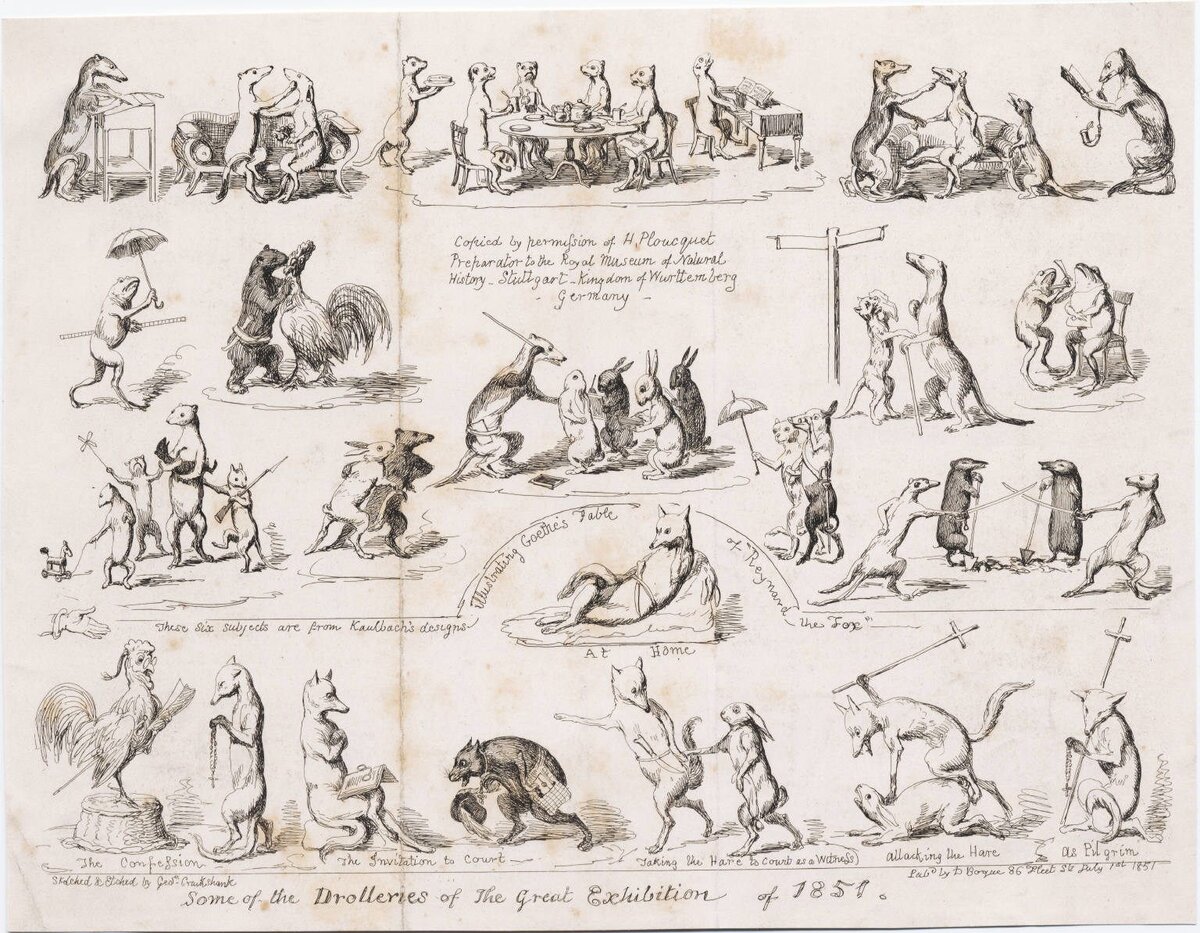 Copied by permission of H Ploucquet
Preparator to the Royal Museum of Natural
History - Stuttgart - Kingdom of Wurttemberg
- Germany -
Illustrating Goethe's Fable
of "Reynard
the Fox"
These six subjects are from Kaulbach's designs
At Home
The Confession
The Invitation to Court
Taking the Hare to Court as a Witness)
attacking the Hare
as Pilgrim
Sketched & Etched by Geoe. Cruikshank
Pubd by D Bogue 86 Fleet St July 1st 1851
Some of the Drolleries of The Great Exhibition of 1851.